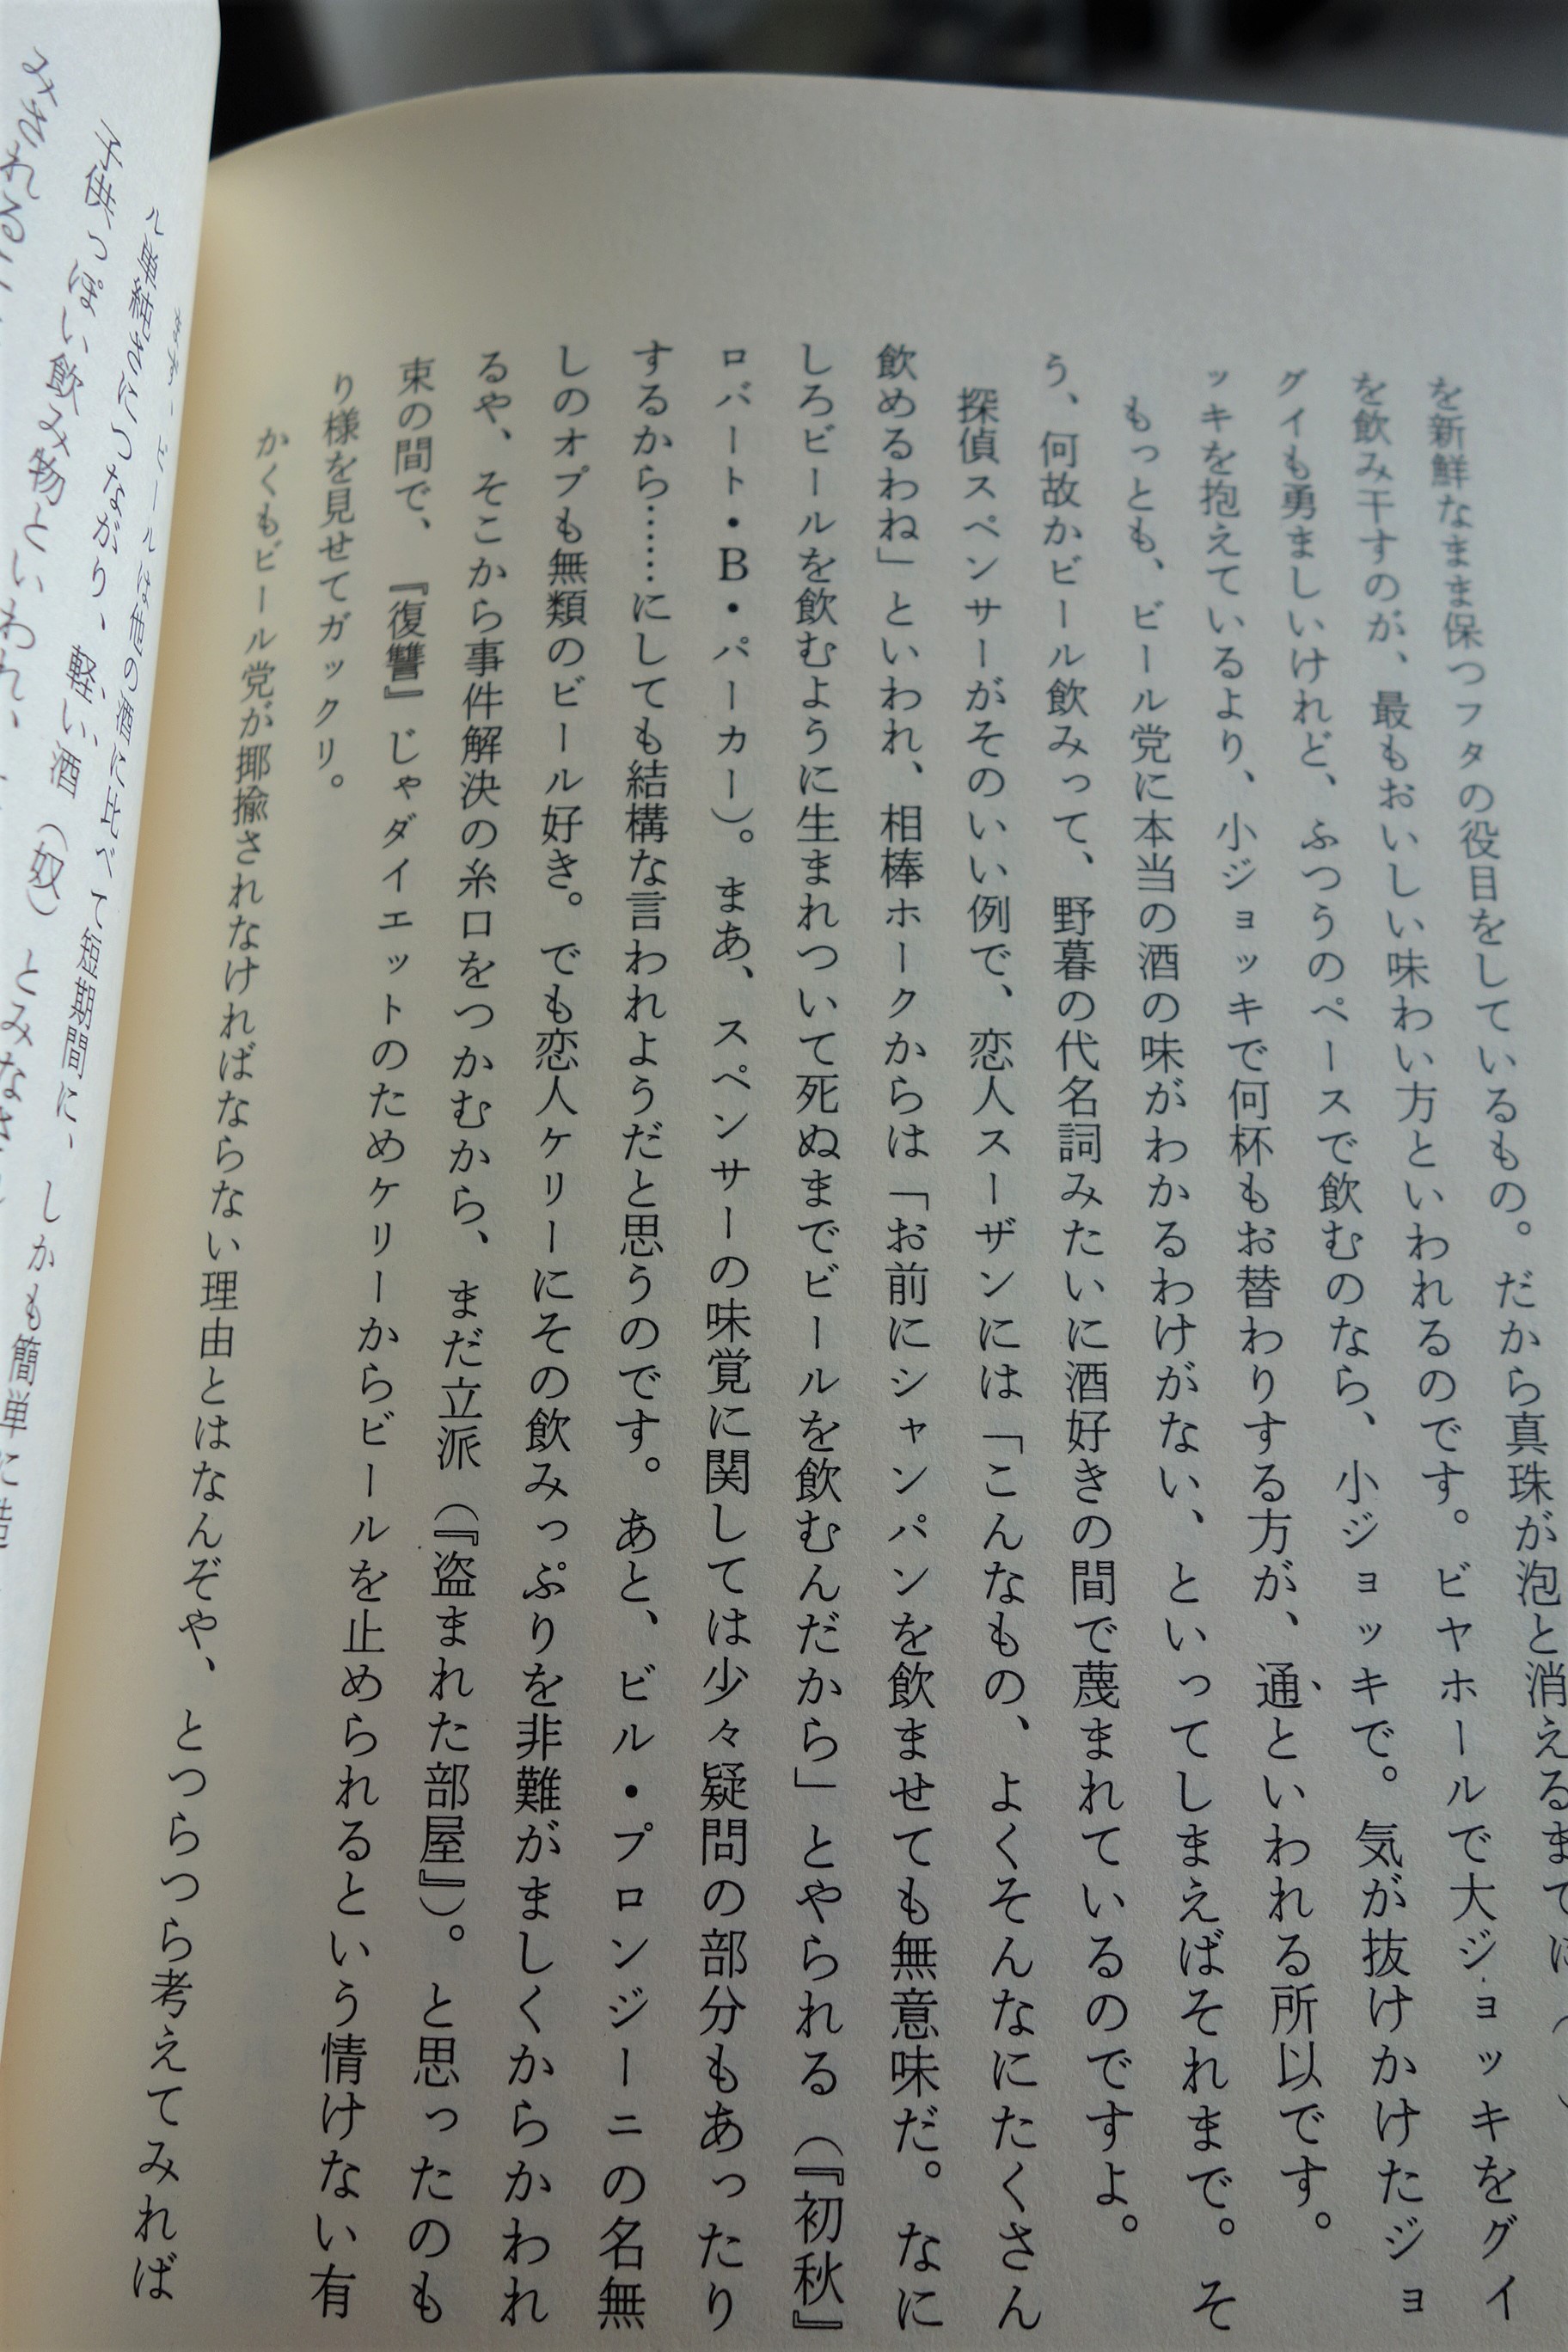 を新鮮なまま保つフタの役目をしているもの。だから真珠が泡と消えるまでは
を飲み干すのが、最もおいしい味わい方といわれるのです。ビヤホールで大ジョッキをグイ
グイも勇ましいけれど、ふつうのペースで飲むのなら、小ジョッキで。気が抜けかけたジョ
ッキを抱えているより、小ジョッキで何杯もお替わりする方が、通といわれる所以です。
もっとも、ビール党に本当の酒の味がわかるわけがない、といってしまえばそれまで。そ
う、何故かビール飲みって、野暮の代名詞みたいに酒好きの間で蔑まれているのですよ。
探偵スペンサーがそのいい例で、恋人スーザンには「こんなもの、よくそんなにたくさん
飲めるわね」といわれ、相棒ホークからは「お前にシャンパンを飲ませても無意味だ。なに
しろビールを飲むように生まれついて死ぬまでビールを飲むんだから」とやられる(『初秋』
ロバート・B・パーカー)。まあ、スペンサーの味覚に関しては少々疑問の部分もあったり
するから……にしても結構な言われようだと思うのです。あと、ビル・プロンジーニの名無
しのオプも無類のビール好き。でも恋人ケリーにその飲みっぷりを非難がましくからかわれ
るや、そこから事件解決の糸口をつかむから、まだ立派(『盗まれた部屋』)。と思ったのも
束の間で、『復讐』じゃダイエットのためケリーからビールを止められるという情けない有
り様を見せてガックリ。
かくもビール党が揶揄されなければならない理由とはなんぞや、とつらつら考えてみれば
ビールは他の酒に比べて短期間に、しかも簡単に造
につながり、軽い酒(奴)とみなさ
子供っぽい飲み物といわれ、